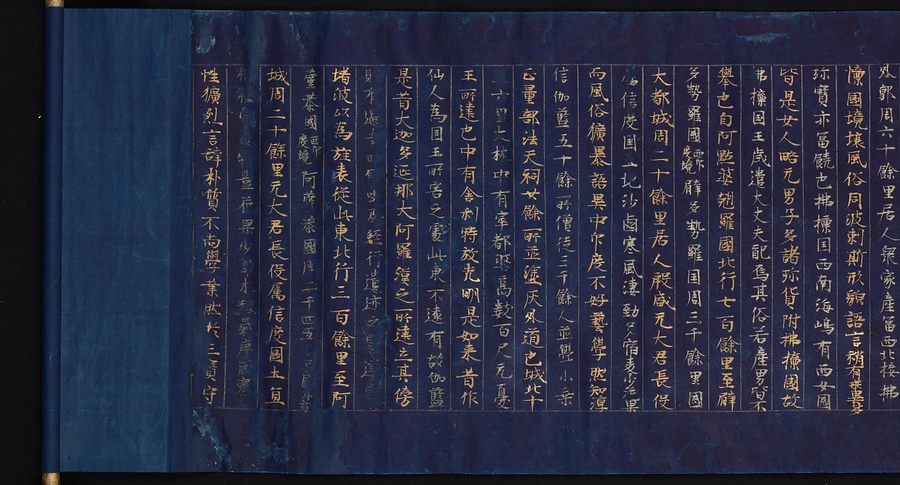 外郭周六十餘里居人衆家産富西北接拂
懍國境壤風俗同波剌斯形貌語言稍有乖異多
珎寳亦富饒也拂懍国西南海嶋有西女國
皆是女人略无男子多諸珎貨附拂懍國故
拂懍国王歳遣大丈夫配焉其俗若産男皆不
舉也自阿點婆翅羅國北行七百餘里至臂
多勢羅國西印度境臂多勢羅国周三千餘里國
大都城周二十餘里居人殷盛无大君長役
属信度国土地沙鹵寒風凄勁多宿麦少花果
而風俗獷暴語異中印度不好藝學然知淳
信伽藍五十餘所僧徒三千餘人並學小乘
正量部法天祠廿餘所並塗灰外道也城北十
五六里大林中有窣都婆髙數百尺无憂
王所達也中有舍利時放光明是如来昔作
仙人為国王所害之處此東不遠有故伽藍
是昔大迦多延那大阿羅漢之所達立其傍
則有過去四佛坐及經行遺迹之處達窣
堵波以為旌表從此東北行三百餘里至阿
軬荼國西印度境阿軬荼國周二千四五百里國大都
城周二十餘里无大君長役属信度國土宜
性獷烈言辞朴質不尚學業然於三寶守